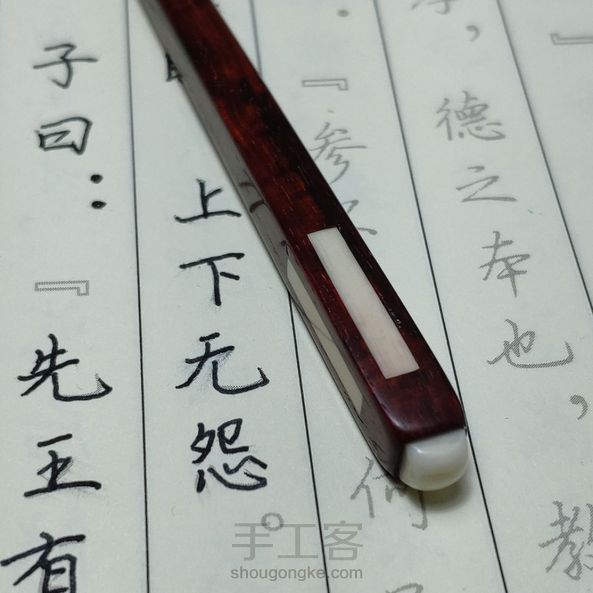 子曰：『先王有
上下无怨。
『参
何
，德之本也，教
『
手工客
shougongke.com